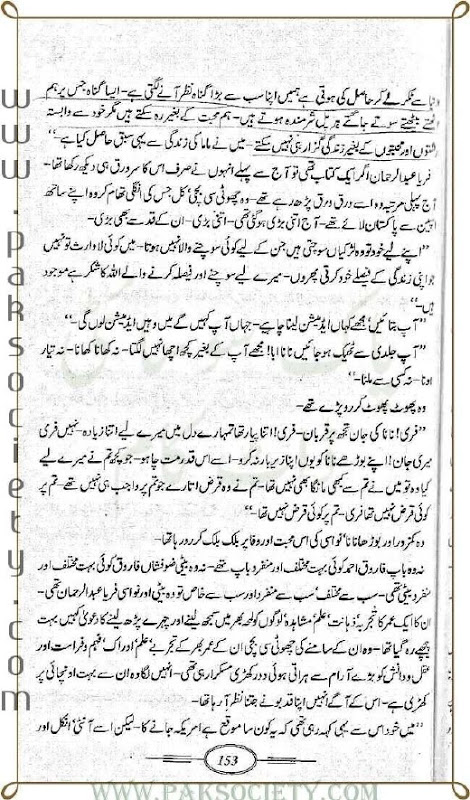 دنیا سے ٹکر لے کر حاصل کی ہوتی ہے ہمیں اپنا سب سے بڑا گناہ نظر آنے لگتی ہے۔ ایسا گناہ جس پر ہم
اٹھتے بیٹھتے سوتے جاگتے ہر پل شرمندہ ہوتے ہیں۔ ہم محبت کے بغیر رہ سکتے ہیں مگر خود سے وابستہ
رشتوں اور محبتوں کے بغیر زندگی گزار ہی نہیں سکتے۔ میں نے ماما کی زندگی سے یہی سبق حاصل کیا ہے۔''
فریا عبدالرحمان اگر ایک کتاب تھی تو آج سے پہلے انہوں نے صرف اس کا سرورق ہی دیکھ رکھا تھا۔
آج پہلی مرتبہ وہ اسے ورق ورق پڑھ رہے تھے۔ وہ چھوٹی سی بچی' کل جس کی انگلی تھام کر وہ اپنے ساتھ
اسپین سے پاکستان لائے تھے۔ آج اتنی بڑی ہو گئی تھی۔ اتنی بڑی۔ ان کے قد سے بھی بڑی۔
''اپنے لیے خود تو وہ لڑکیاں سوچتی ہیں جن کے لیے کوئی سوچنے والا نہیں ہوتا۔ میں کوئی لاوارث تو نہیں
جو اپنی زندگی کے فیصلے خود کرتی پھروں۔ میرے لیے سوچنے اور فیصلہ کرنے والے اللہ کا شکر ہے موجود
ہیں۔''
''آپ بتائیں' مجھے کہاں ایڈمیشن لینا چاہیے۔ جہاں آپ کہیں گے میں وہیں ایڈمیشن لوں گی۔''
''آپ جلدی سے ٹھیک ہو جائیں نانا ابا! مجھے آپ کے بغیر کچھ اچھا نہیں لگتا۔ نہ کھانا کھانا۔ نہ تیار
ہونا۔ نہ کسی سے ملنا۔''
وہ پھوٹ پھوٹ کر رو پڑے تھے۔
''فری! نانا کی جان تجھ پر قربان۔ فری! اتنا پیار تھا تمہارے دل میں میرے لیے! اتنا زیادہ۔ نہیں فری
میری جان! اپنے بوڑھے نانا کو یوں اپنا زیر بار نہ کرو۔ اسے اس قدر مت چاہو۔ جو کچھ تم نے میرے لیے
کیا وہ تو میں نے تم سے کبھی مانگا بھی نہیں تھا۔ تم نے وہ قرض اتارے جو تم پر واجب ہی نہیں تھے۔ تم پر
کوئی قرض نہیں تھا فری۔ تم پر کوئی قرض نہیں تھا۔''
وہ کمزور اور بوڑھا نانا' نواسی کی اس محبت اور وفا پر بلک بلک کر رو رہا تھا۔
نہ وہ باپ فاروق احمد کوئی بہت مختلف اور منفرد باپ تھے۔ نہ وہ بیٹی ضوفشاں فاروق کوئی بہت مختلف اور
منفرد بیٹی تھی۔ سب سے مختلف' سب سے منفرد اور سب سے خاص تو وہ بیٹی اور نواسی فریا عبدالرحمان تھی۔
ان کا ایک عمر کا تجربہ' ذہانت' علم' مشاہدہ' لوگوں کو لمحہ بھر میں سمجھ لینے اور چہرے پڑھ لینے کا دعویٰ کہیں بہت
پیچھے رہ گیا تھا۔ وہ ان کے سامنے کی چھوٹی سی بچی ان کے عمر بھر کے تجربے' علم' ادراک' فہم و فراست اور
عقل و دانش کو بڑے آرام سے ہراتی ہوئی دور کھڑی مسکرا رہی تھی۔ انہیں لگا وہ ان سے بہت اونچائی پر
کھڑی ہے۔ اس کے آگے انہیں اپنا قد بونے جتنا نظر آ رہا تھا۔
''میں خود اس سے یہی کہہ رہی تھی کہ یہ کون سا موقع ہے امریکہ جانے کا۔ لیکن اسے آنٹی' انکل اور
153
www.paksociety.com
WWW.PAKSOCIETY.COM